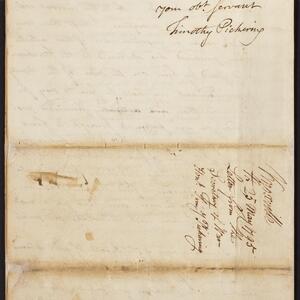 your obt. servant
Timothy Pickering
25 May 1795
Letter from the
Secretary of War
Pickering